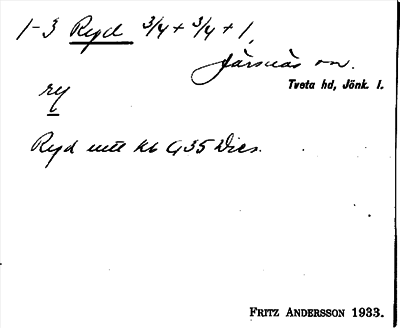 1-3 Ryd 3/4 + 3/4 + 1,
Järsnäs sn.
Tveta hd, Jönk. l.
ry
Ryd utt kb G35 Dies.
FRITZ ANDERSSON 1933.